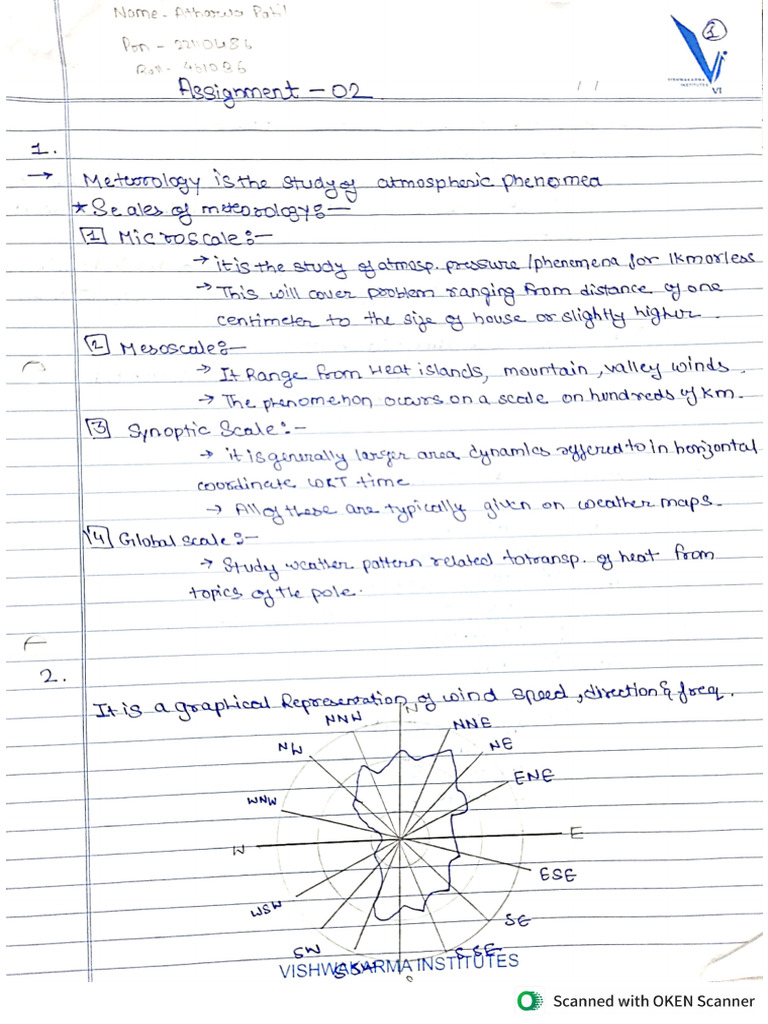 Name - Atharva Patil
Prn - 22110486
Roll - 401086
1
VISHWAKARMA
INSTITUTES
VI
Assignment - 02
/ /
1.
→ Meteorology is the study of atmospheric phenomea
* Scales of meteorology:-
1 Microscale:-
→ it is the study of atmosp. pressure/phenomena for 1km or less
→ This will cover problem ranging from distance of one
centimeter to the size of house or slightly higher.
2 Mesoscale:-
→ It Range from Heat islands, mountain, valley winds.
→ The phenomenon occurs on a scale on hundreds of km.
3 Synoptic Scale:-
→ it is generally larger area dynamics reffered to in horizontal
coordinate WRT time
→ All of these are typically given on weather maps.
4 Global scale:-
→ Study weather pattern related to transp. of heat from
topics of the pole.
2.
It is a graphical Representation of wind speed, direction & freq.
N
NNW NNE
NW NE
WNW ENE
W E
WSW ESE
SW SE
SSW SSE
S
VISHWAKARMA INSTITUTES
Scanned with OKEN Scanner